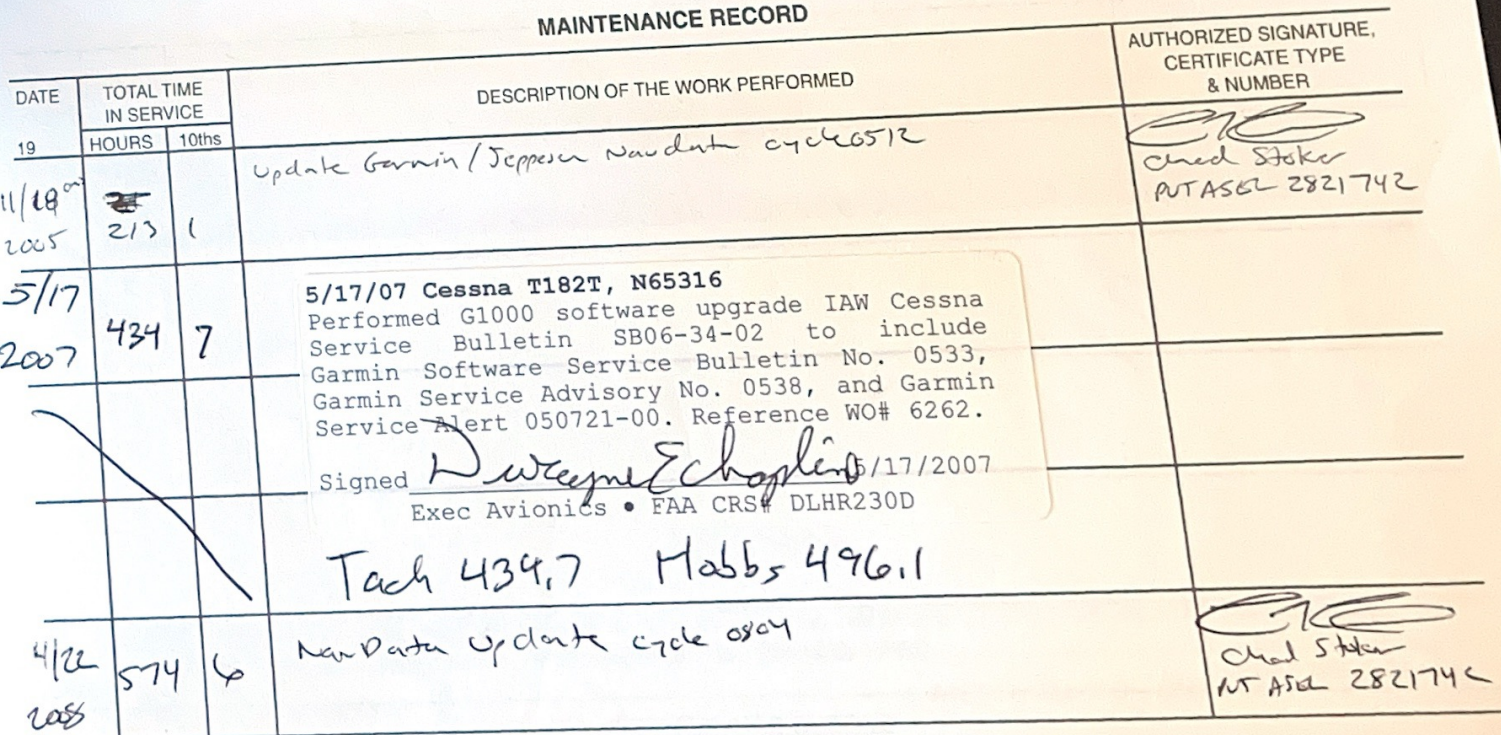 MAINTENANCE RECORD
DATE
TOTAL TIME
IN SERVICE
DESCRIPTION OF THE WORK PERFORMED
AUTHORIZED SIGNATURE,
CERTIFICATE TYPE
& NUMBER
19
HOURS 10ths
11/18
2005
213 1
Update Garmin/Jeppesen Navdata cycle 0512
Chad Stoker
PVT ASEL 2821742
5/17
2007
434 7
5/17/07 Cessna T182T, N65316
Performed G1000 software upgrade IAW Cessna
Service Bulletin SB06-34-02 to include
Garmin Software Service Bulletin No. 0533,
Garmin Service Advisory No. 0538, and Garmin
Service Alert 050721-00. Reference WO# 6262.
Signed Dwayne E Chaplin 5/17/2007
Exec Avionics • FAA CRS# DLHR230D
Tach 434.7 Hobbs 496.1
4/22
2008
574 6
NavData Update cycle 0804
Chad Stoker
PVT ASEL 2821742